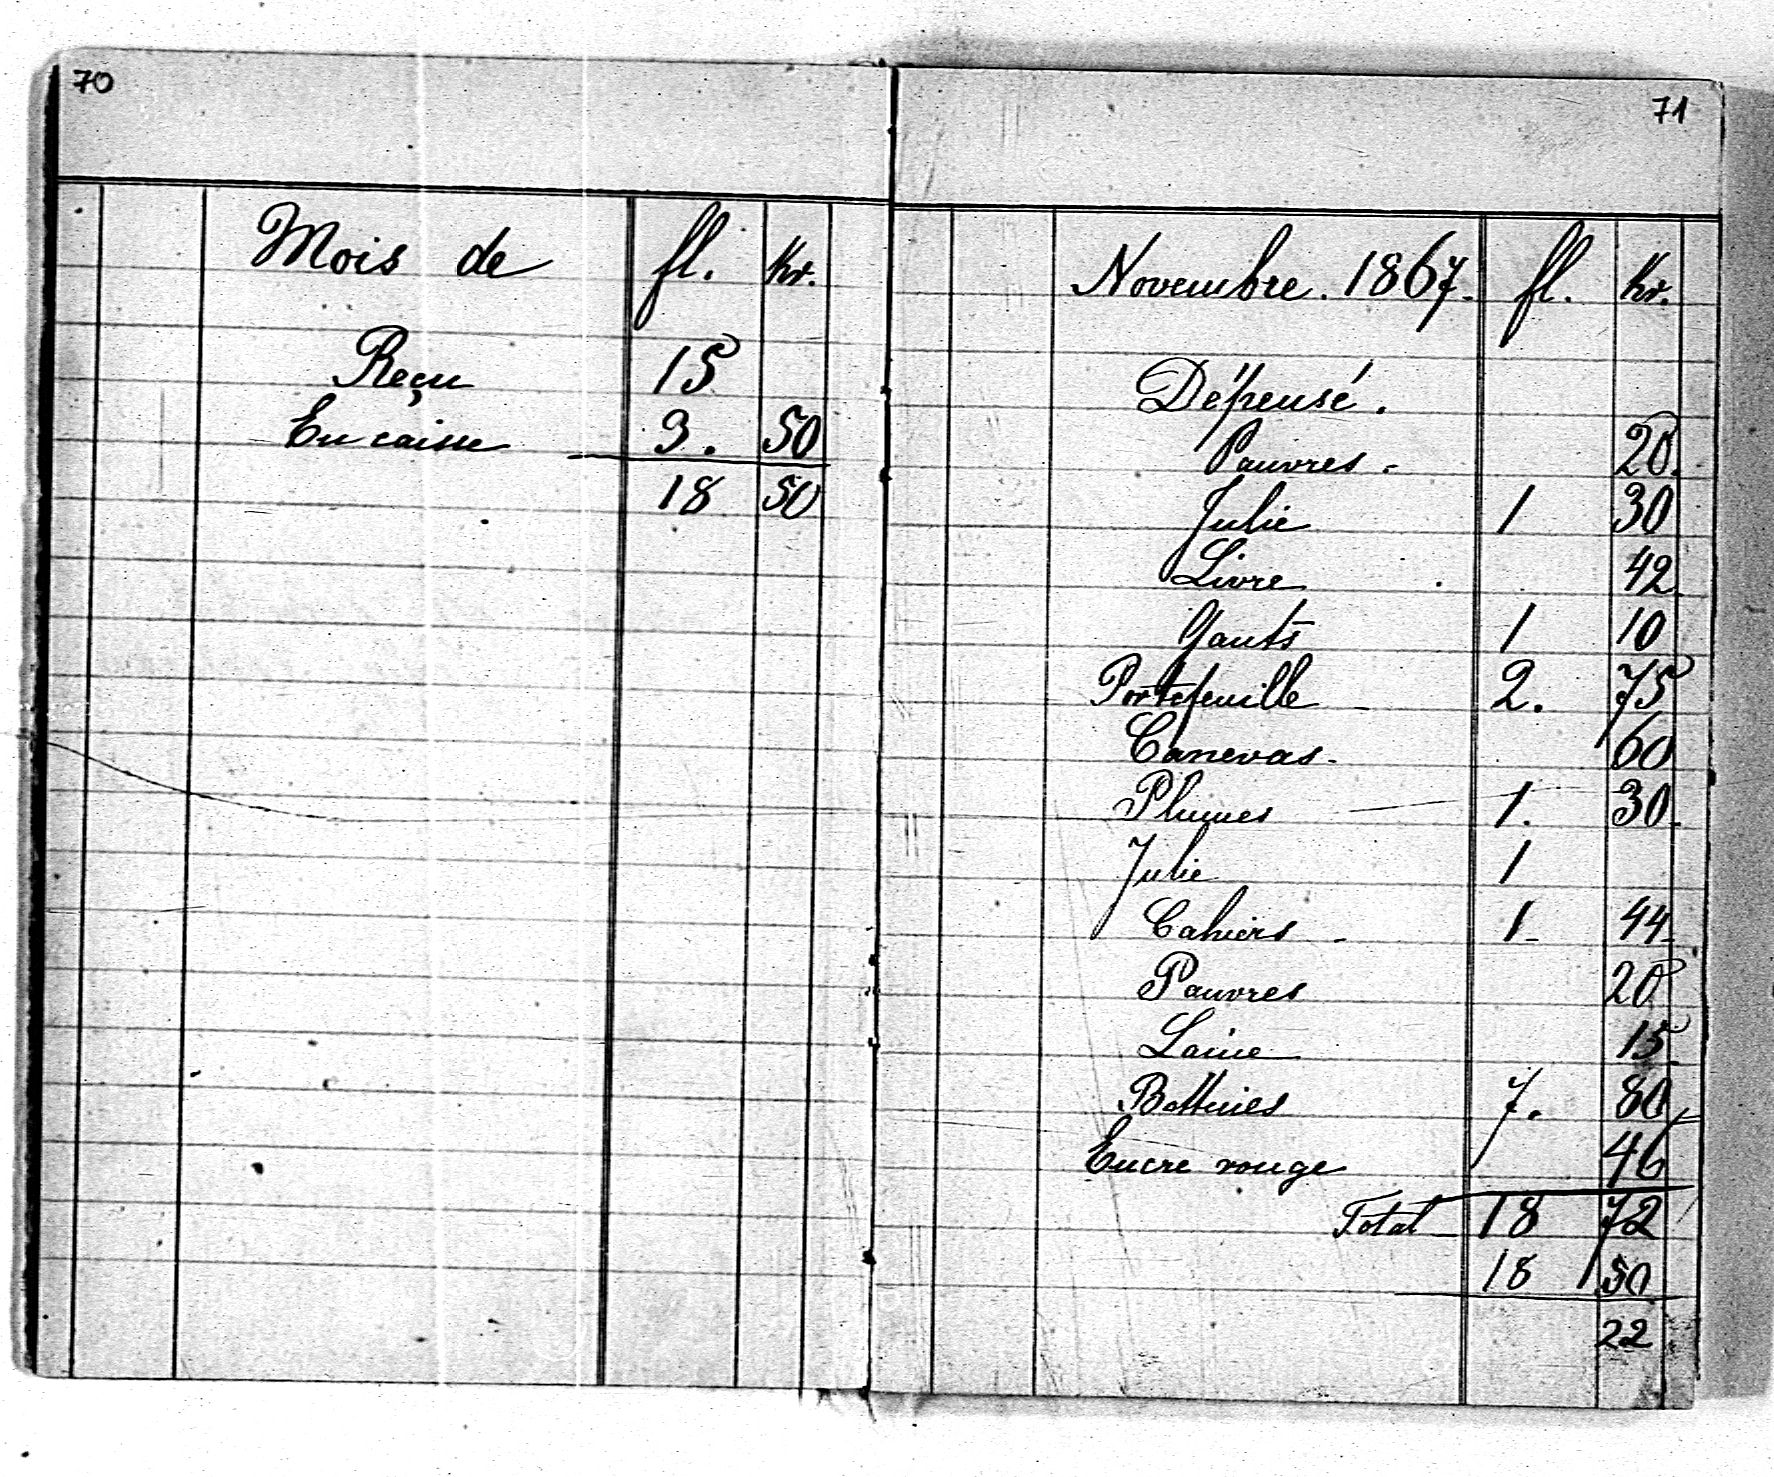 70
Mois de fl. kr.
Reçu 15
En caisse 3. 50
18 50
71
Novembre. 1867. fl. kr.
Dépensé.
Pauvres. 20.
Julie 1 30
Livre 42
Gants 1 10
Portefeuille 2. 75
Canevas. 60
Plumes 1. 30.
Julie 1
Cahiers 1 44
Pauvres 20
Laine 15
Bottines 7. 80
Encre rouge 46
Total 18 72
18 50
22